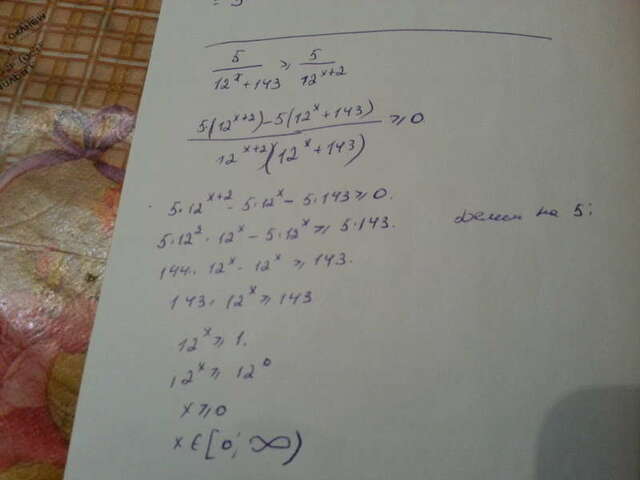 = 5
5/(12^x + 143) ≥ 5/12^(x+2)
(5(12^(x+2)) - 5(12^x + 143))/(12^(x+2)(12^x + 143)) ≥ 0
5·12^(x+2) - 5·12^x - 5·143 ≥ 0.
5·12^2 · 12^x - 5·12^x ≥ 5·143. делим на 5:
144· 12^x - 12^x ≥ 143.
143· 12^x ≥ 143
12^x ≥ 1.
12^x ≥ 12^0
x ≥ 0
x ∈ [0; ∞)